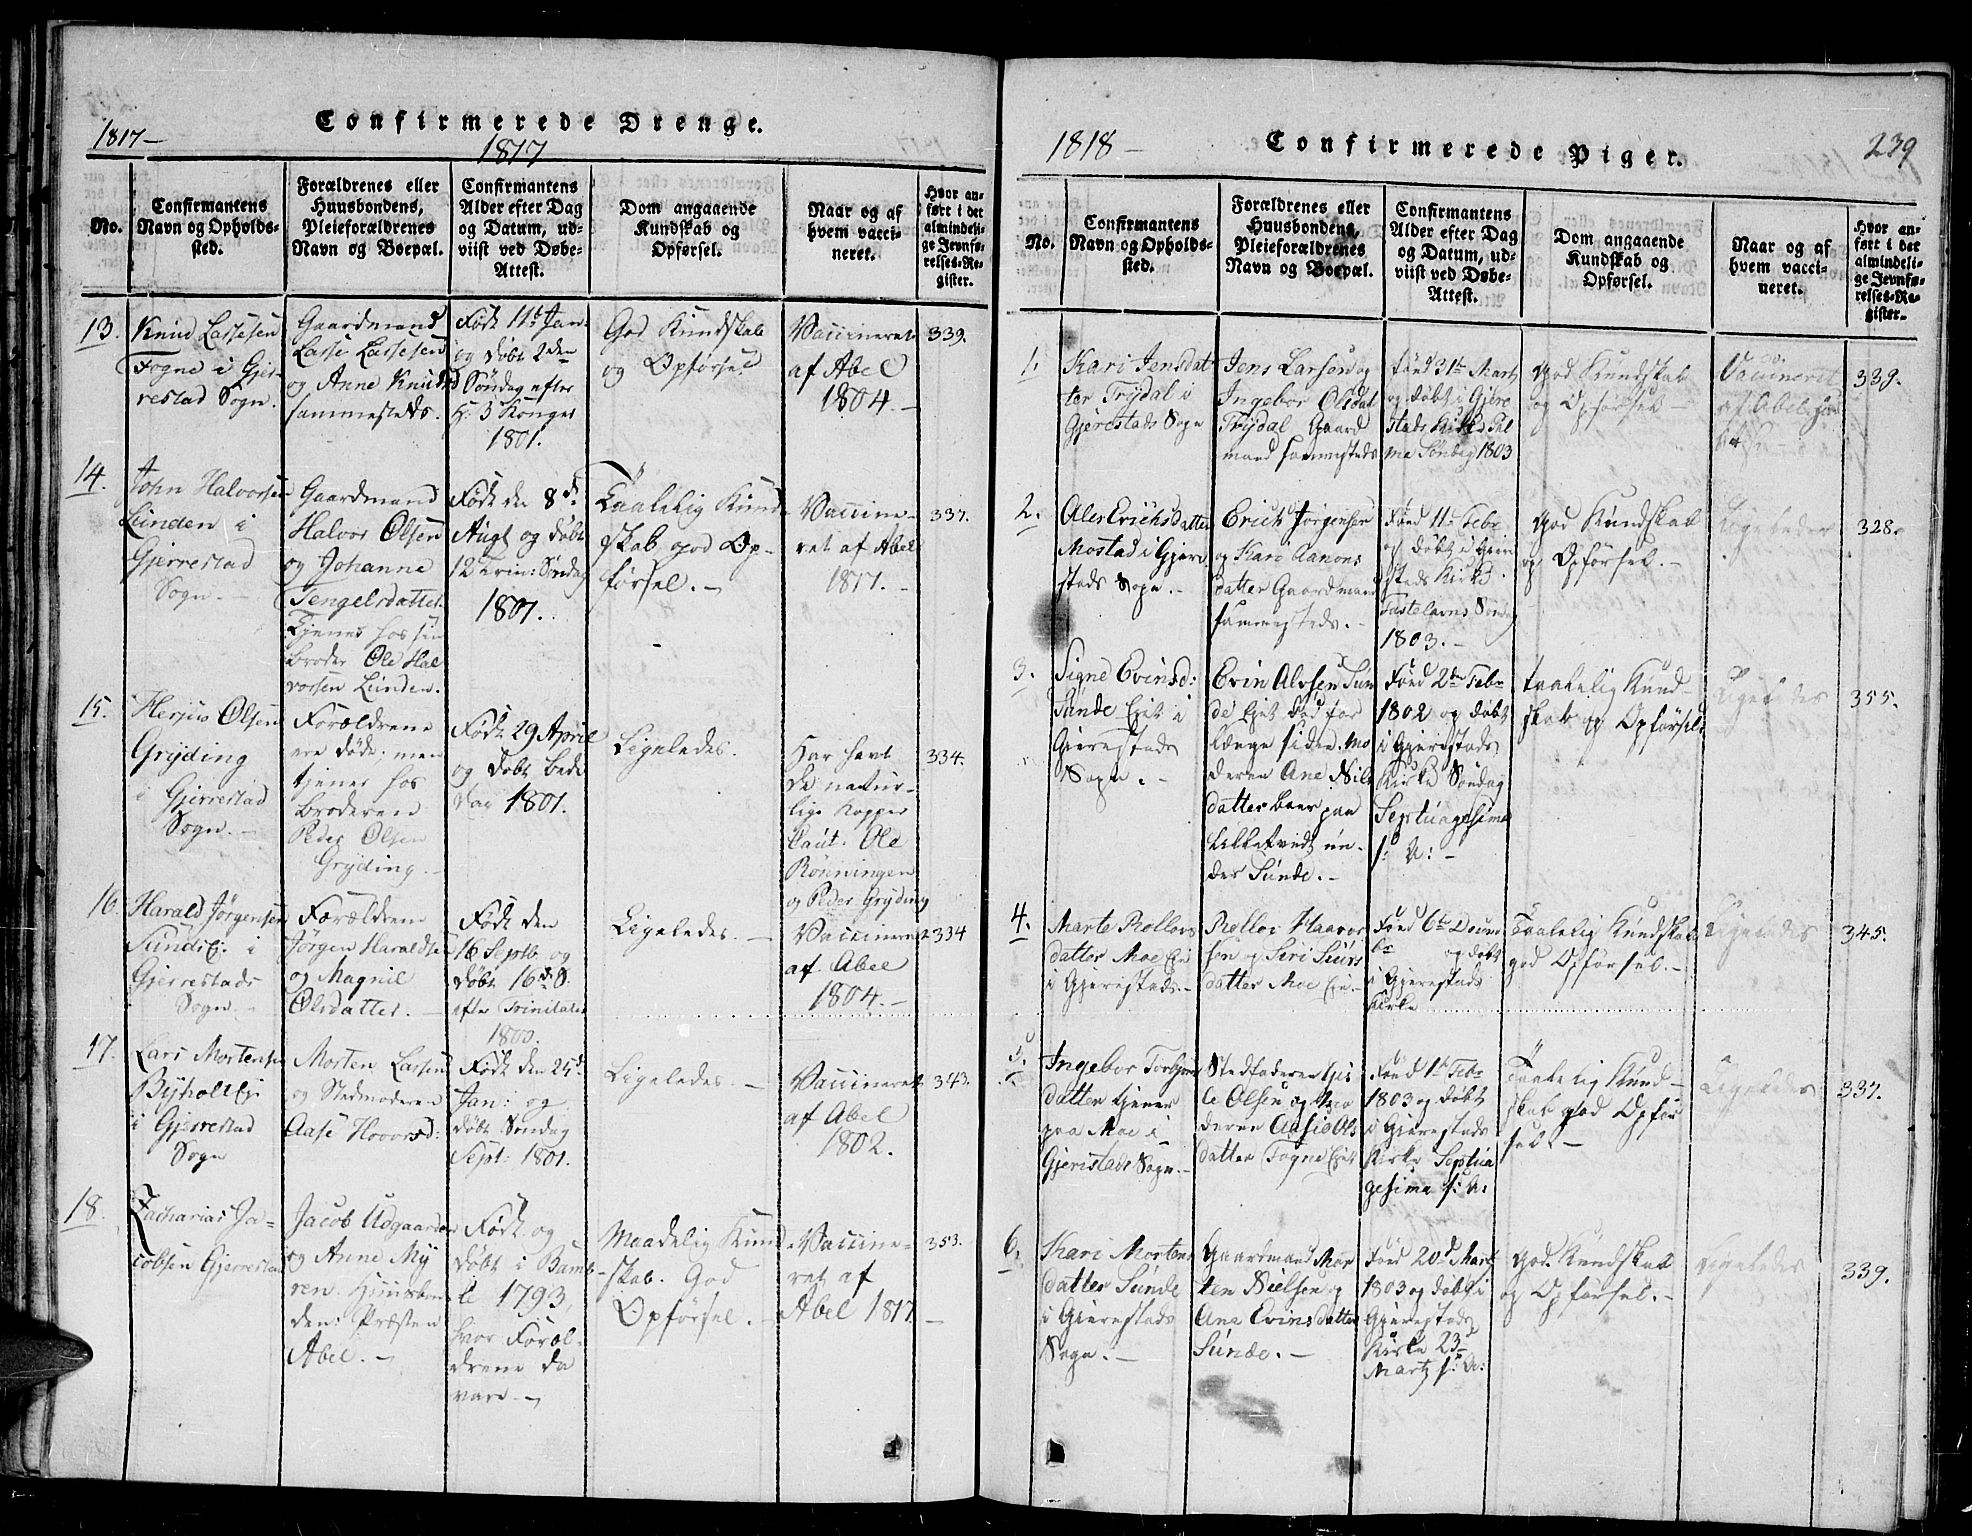 1817-
Confirmerede Drenge.
1817
No.
Confirmantens
Navn og Opholds-
sted.
Forældrenes eller
Huusbondens,
Pleieforældrenes
Navn og Boepæl.
Confirmantens
Alder efter Dag
og Datum, ud-
viist ved Døbe-
Attest.
Dom angaaende
Kundskab og
Opførsel.
Naar og af
hvem vacci-
neret.
Hvor an-
ført i det
almindeli-
ge Jevnfø-
relses-Re-
gister.
13.
Knud Lassesen
Fogne i Gjer-
restad Sogn.
Gaardmand
Lasse Lassesen
og Anne Knudsd
sammesteds.
Født 11te Jan:
og døbt 2den
Søndag efter
H: 3 Konger
1801.
God Kundskab
og Opførsel
Vaccineret
af Abel
1804.-
339.
14.
John Halvorsen
Lunden i
Gjerrestad
Sogn.-
Gaardmand
Halvor Olsen
og Johanne
Tengelsdatter.
Tjener hos sin
Broder Ole Hal
vorsen Lunden.
Født den 8de
Augt og døbt
12 Trin: Søndag
1801.
Taalelig Kund-
skab, god Op-
førsel.-
Vaccine-
ret af Abel
1817.-
337.
15.
Herjus Olsen
Gryding
i Gjerrestad
Sogn.-
Forældrene
ere døde; men
tjener hos
Broderen
Peder Olsen
Gryding.-
Født 29 April
og døbt Bede
dag 1801.
Ligeledes.
Har havt
de natur-
lige Kopper
Caut. Ole
Rønningen
og Peder Gryding
334.
16.
Harald Jørgensen
Sundei: i
Gjerrestads
Sogn.-
Forældrene
Jørgen Haraldse
og Magnil
Olsdatter.-
Født den
16 Septb. og
døbt 16de S.
efter Trinitatis
1800.
Ligeledes.-
Vaccineret
af Abel
1804.-
334
17.
Lars Mortensen
Byholt Ei:
i Gjerrestad
Sogn
Morten Lassen
og Stedmoderen
Aase Hoovrsd:
Født den 25de
Jan: og
døbt Søndag
Sept: 1801.
Ligeledes.-
Vaccineret
af Abel
1802.
343.
18.
Zacharias Ja-
cobsen Gjerrestad
Jacob Udgaarden
og Anne My
ren. Huusbon
den: Præsten
Abel.-
Født og
døbt i Bamb-
le 1793,
hvor Foræl-
drene da
vare.-
Maadelig Kund-
skab. God
Opførsel.-
Vaccine-
ret af
Abel 1817.-
353.
1818-
Confirmerede Piger.
239
No.
Confirmantens
Navn og Opholds-
sted.
Forældrenes eller
Huusbondens,
Pleieforældrenes
Navn og Boepæl.
Confirmantens
Alder efter Dag
og Datum, ud-
viist ved Døbe-
Attest.
Dom angaaende
Kundskab og
Opførsel.
Naar og af
hvem vacci-
neret.
Hvor an-
ført i det
almindeli-
ge Jevnfø-
relses-Re-
gister.
1.
Kari Jensdat
ter Trydal i
Gjerestads Sogn
Jens Larsen og
Ingebor Olsdat
Trydal Gaard
mand sammesteds
Fønd 31te Marts
og døbt i Gjere
stads Kirke Pal
me Søndag 1803
God Kundskab
og Opførsel-
Vaccineret
af Abel
339.
2.
Ales Erichsdatter
Mostad i Gjere
stads Sogn.-
Erick Jørgensen
og Kari Aanons
datter Gaardmand
sammesteds.-
Fønd 11te Febr
og døbt i Gjere
stads Kirke
Fastelavns Sønd
1803.-
God Kundskab
og Opførsel.-
Ligeledes
328.
3.
Signe Evinsd:
Sunde Eiet i
Gjerestads
Sogn.-
Evin Alvsen Sun
de Eiet død for
længe siden. Mo
deren Ane Nils
datter boer paa
Lilletvedt un-
der Sunde.-
Fønd 2den Febr
1802 og døbt
i Gjerestads
Kirke Søndag
Septuagesima
s: A:-
Taalelig Kund-
skab og Opførsel
Ligeledes
355.
4.
Marte Rollovs
datter Moe Eie
i Gjerestads.-
Rollov Haavor
sen og Siri Siurs
datter Moe Eie.-
Fønd 6te Decem
br og døbt
i Gjerestads
Kirke
Taalelig Kundskab
god Opførsel.-
Ligeledes
345.
5.
Ingebor Torbjøns
datter tjener
paa Moe i
Gjerestads Sogn.-
Stedfaderen Gis
le Olsen og Mo
deren Aasie Ols
datter Fogne Eiet
Fønd 1te Febr
1803 og døbt
i Gjerestads
Kirke Septua
gesima s: A:
Taalelig Kund-
skab god Opfør
sel-
Ligeledes
337.
6.
Kari Mortens
datter Sunde
i Gjerestads
Sogn.-
Gaardmand Mor
ten Nielsen og
Ane Evinsdatter
Sunde.-
Fønd 20de Marts
1803 og døbt i
Gjerestads
Kirke 23de
Marts s: A:
God Kundskab
og Opførsel.-
Ligeledes
339.